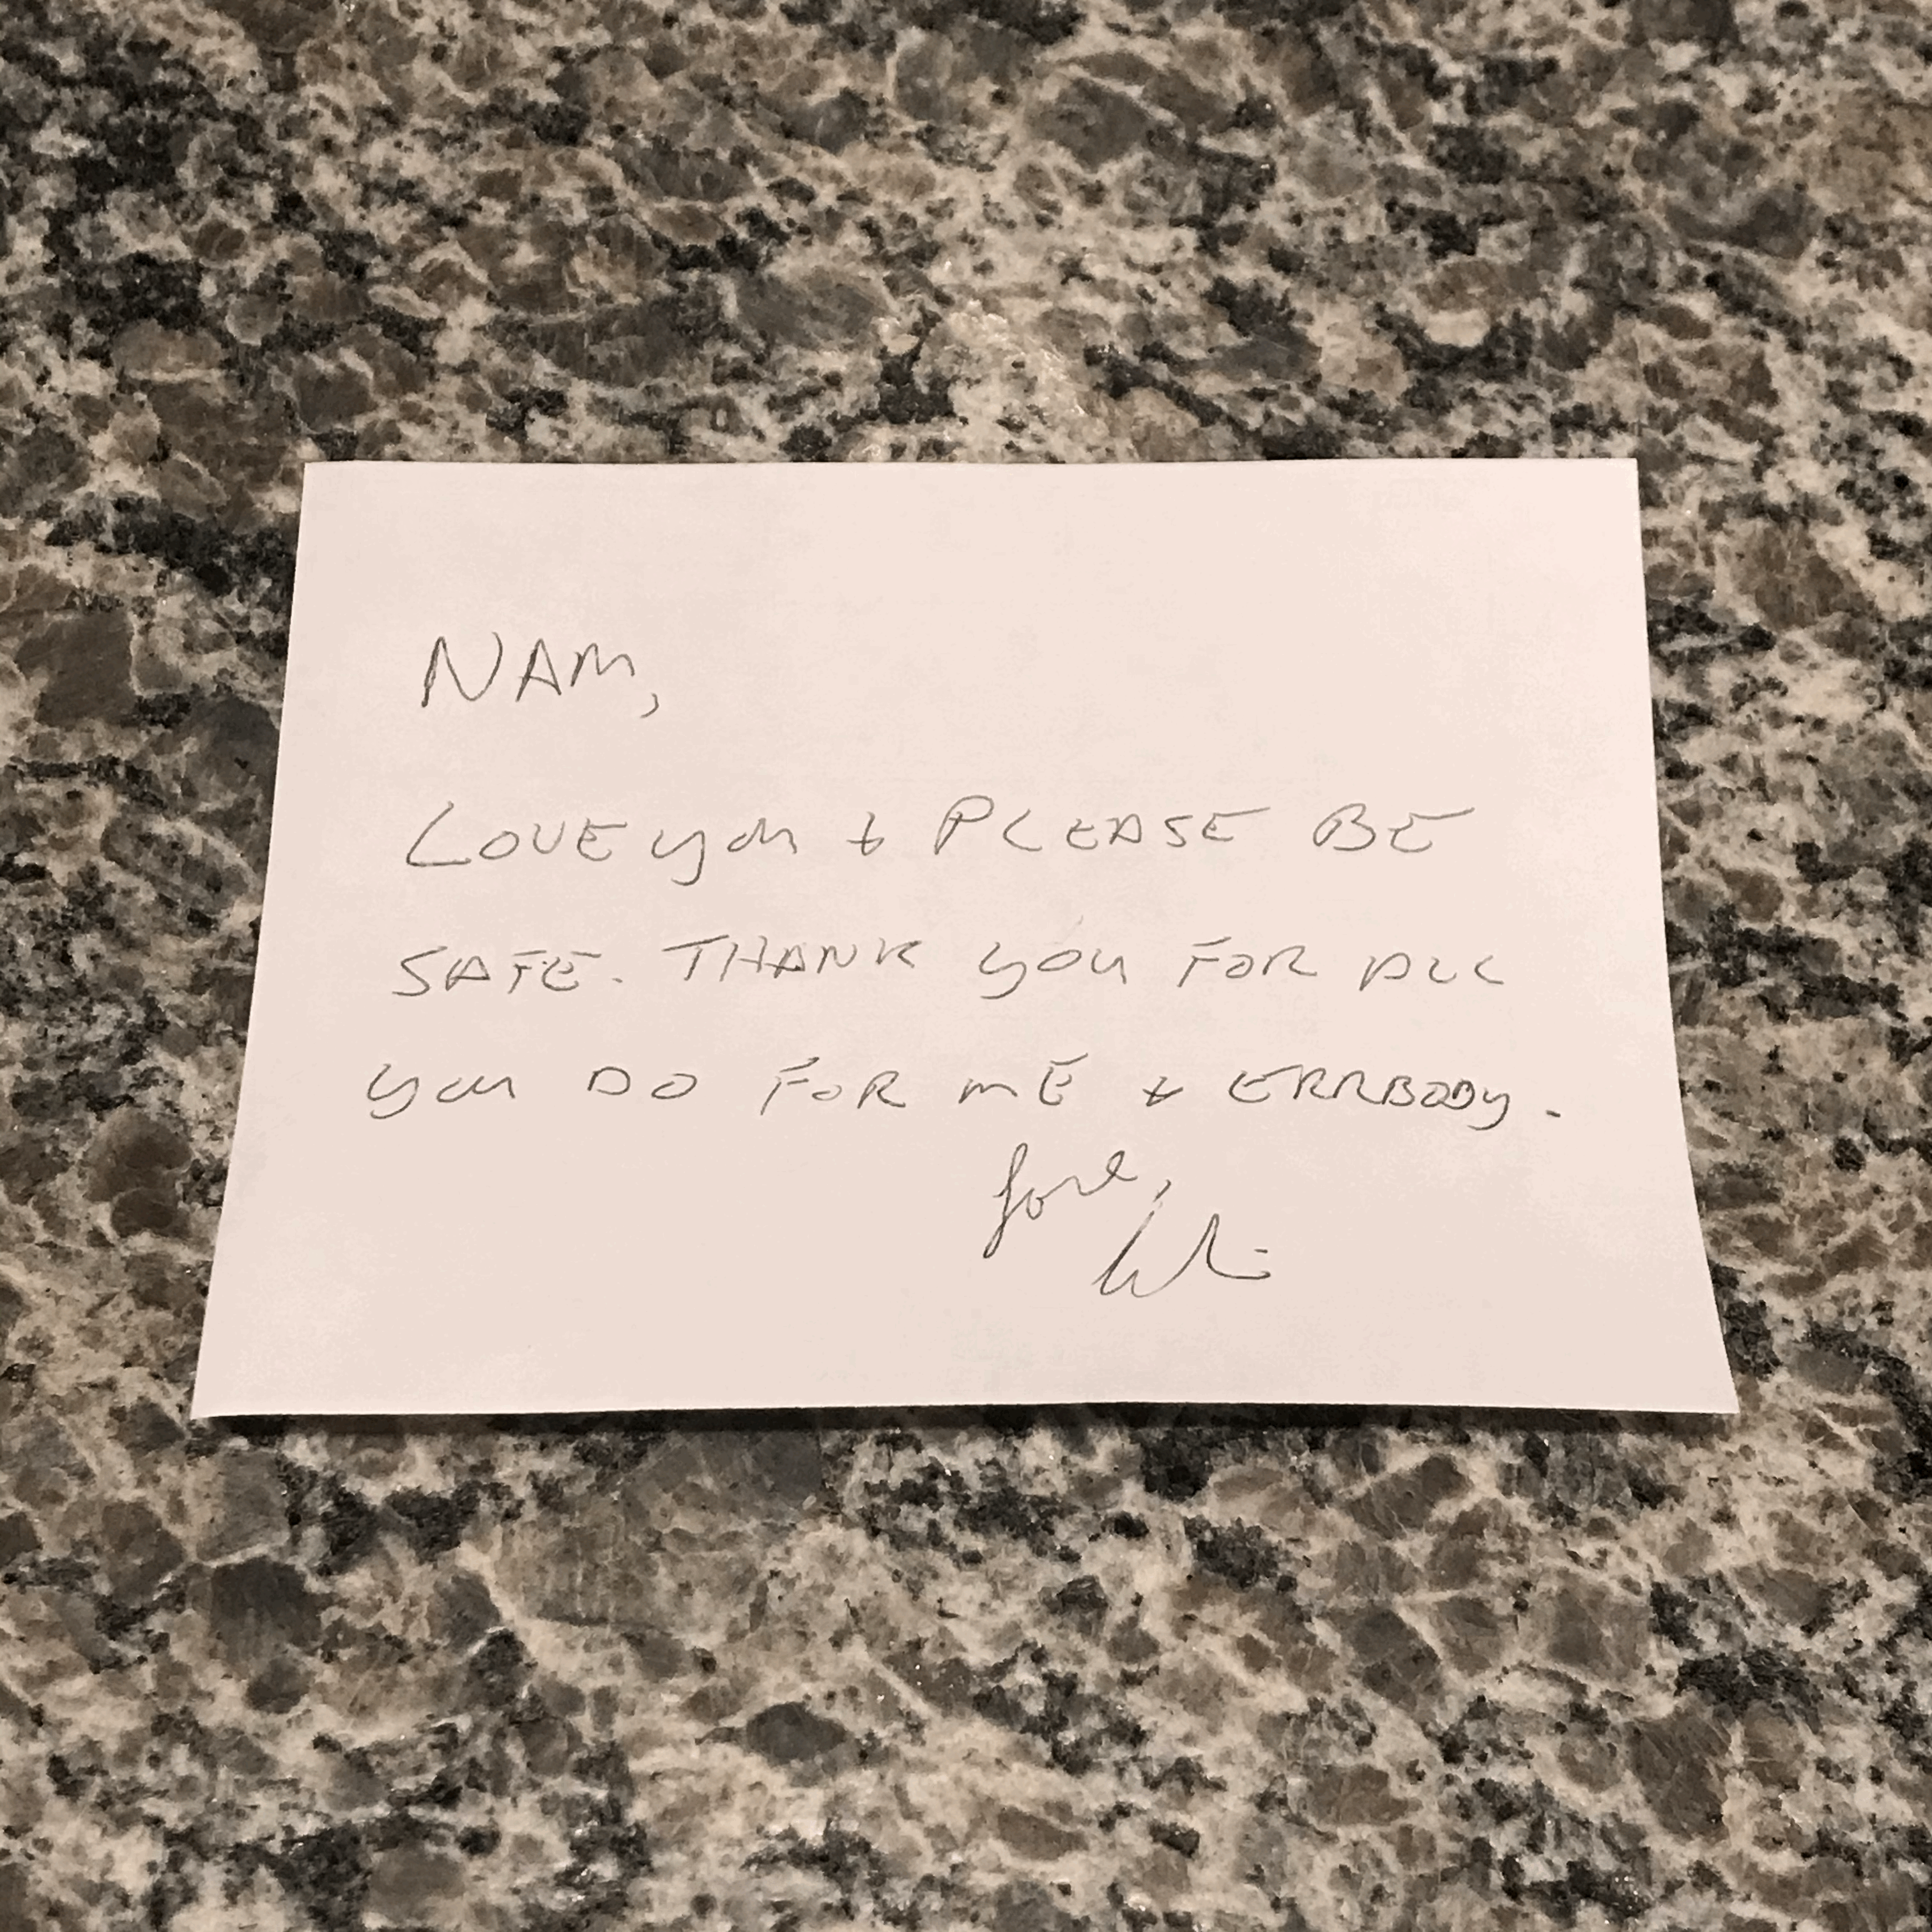 NAM,
LOVE you & PLEASE BE
SAFE. THANK you FOR ALL
you DO FOR ME & ERRBODY.
Love,